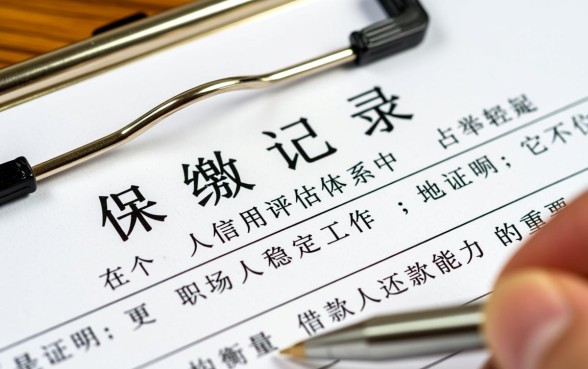 保缴记录
在个 人信用评估体系中 占举轻
是证明：更 职场人稳定工作 ；地证明；它不
衡量 借款人还款能力 的重要